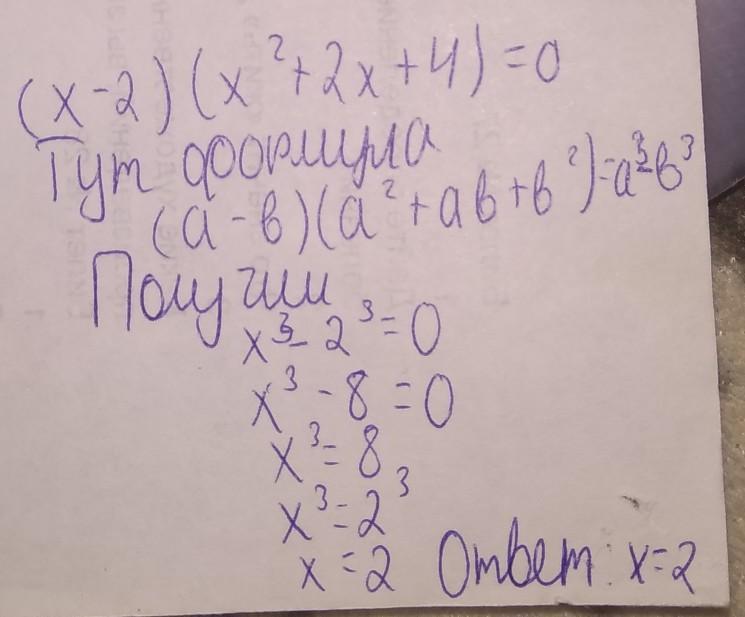 (x-2)(x²+2x+4)=0
Тут формула
(а-в)(а²+ав+в²)=а³-в³
Получим
x³-2³=0
x³-8=0
x³=8
x³=2³
x=2 Ответ: x=2